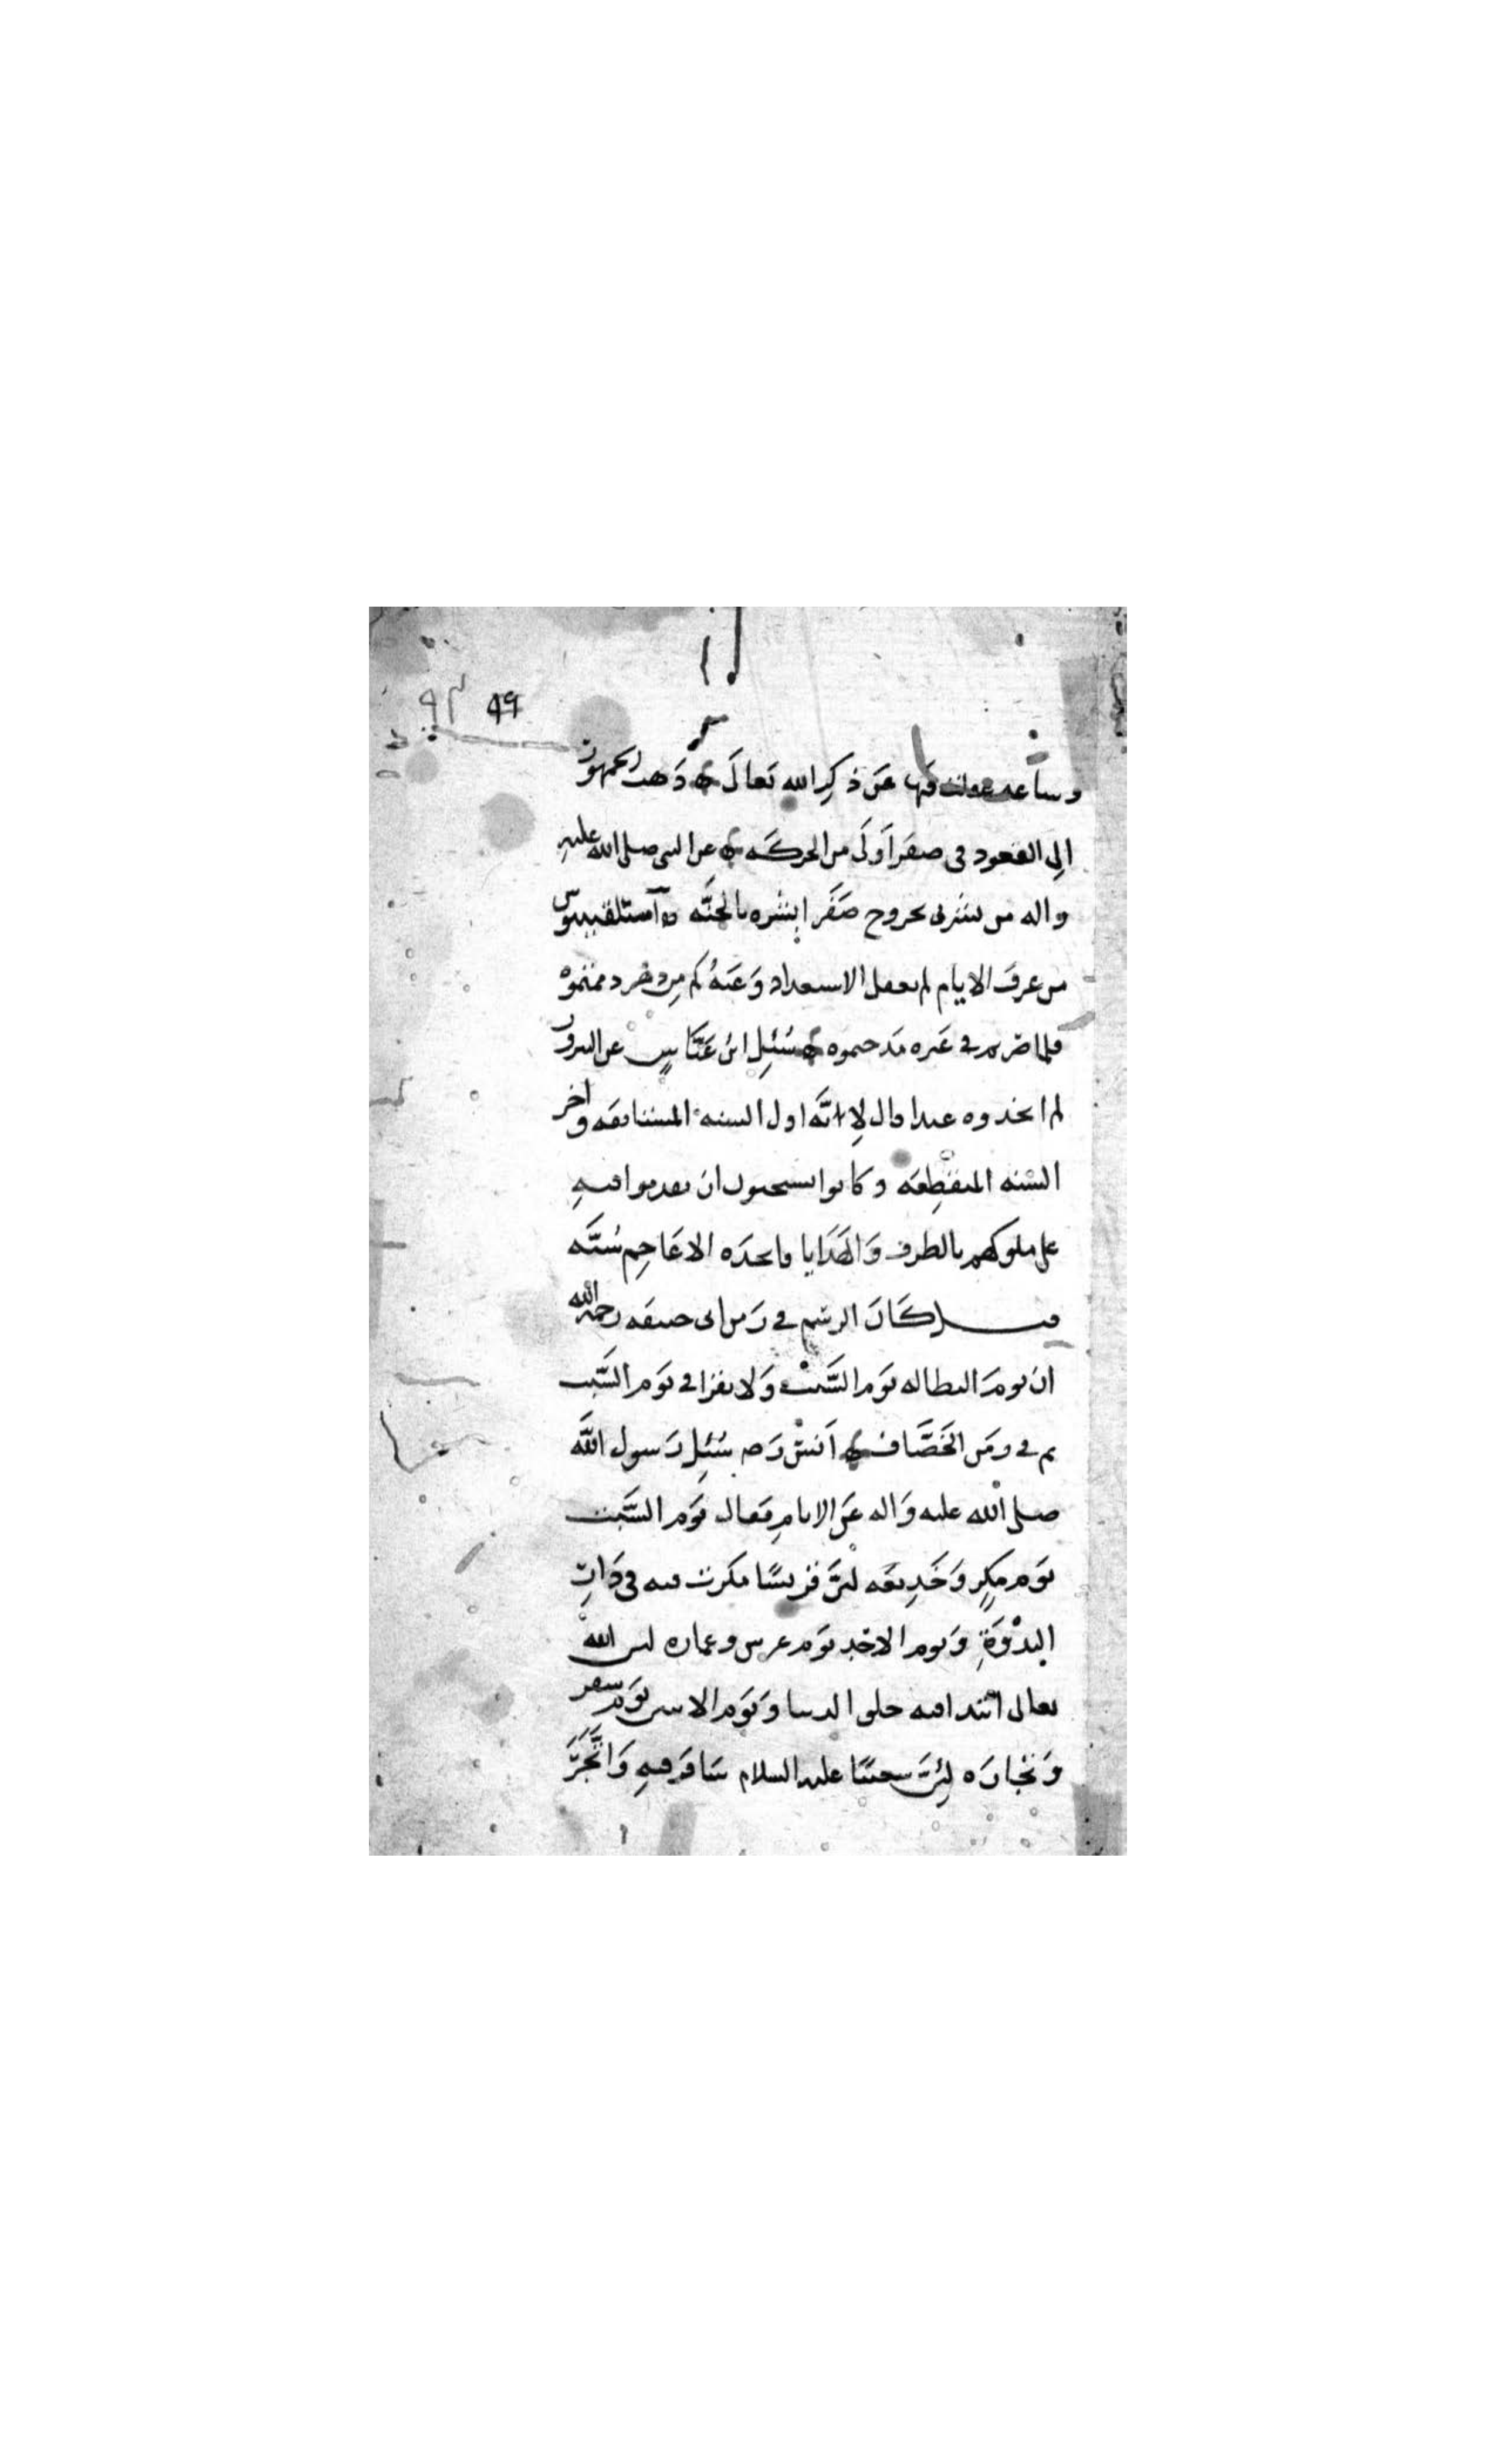 ٩٣ ٤٩
وساعه غفلت فيها عن ذكر الله تعالى ذهب الجمهور
الى القعود فى صفر اولى من الحركه عن النبى صلى الله عليه
واله من بشرنى بخروج صفر ابشره بالجنه
من عرف الايام لم يغفل الاستعداد وعنه كم من دهر ذممتموه
فلما صرتم فى غيره حمدتموه سُئِل ابن عبّاسٍ عن النيروز
لم اتخذوه عيدا قال لِانّه اول السنه المستانفه وآخر
السنه المنقطعه وكانوا يستحبون ان يقدموا فيه
على ملوكهم بالطرف والهدايا فاتخذه الاعاجم سُنَّه
قيل كان الرسم فى زمن ابى حنيفه رحمه الله
ان يوم البطاله يوم السَّبت ولا يقرا فى يوم السَّبت
ثم فى زمن الخَصَّاف انس رضه سُئِل رَسول الله
صلى الله عليه واله عن الايام فقال يوم السَّبت
يوم مكرٍ وخديعه لئنّ قريشًا مكرت فيه فى دَار
النّدوة ويوم الاحد يوم غرس وعماره لئن الله
تعالى ابتدا فيه خلق الدنيا ويَوم الاثنين يوم سفر
وتجاره لِئنّ شعيبًا عليه السلام سَافر فيه واتَّجَرَ